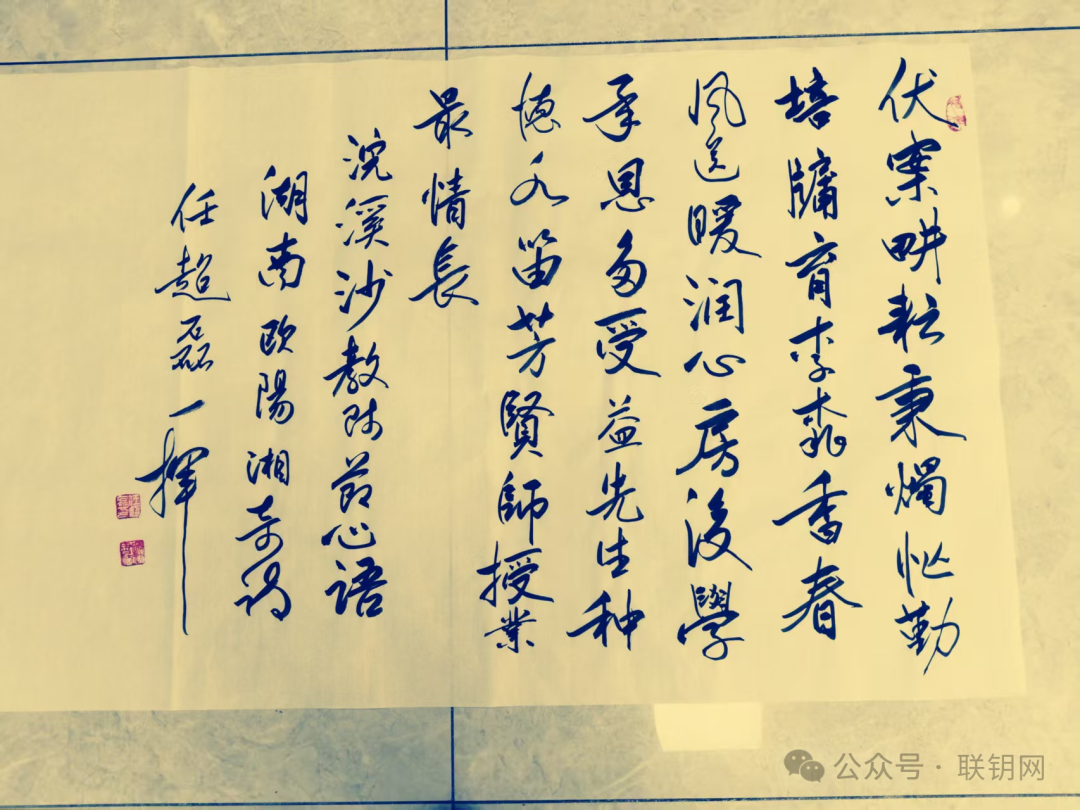 伏案畊耘秉燭忙勤
培牖育李桃香春
风送暖润心房後學
承恩多受益先生种
德永留芳賢師授業
最情長
浣溪沙教师节心语
湖南欧陽湘奇词
任超磊一揮
公众号 · 联钥网